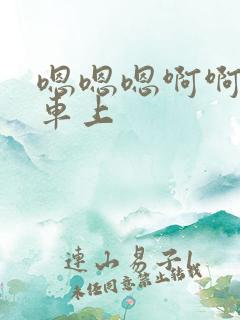 嗯嗯嗯啊啊
車上
連山易子l
未任同意禁止转载